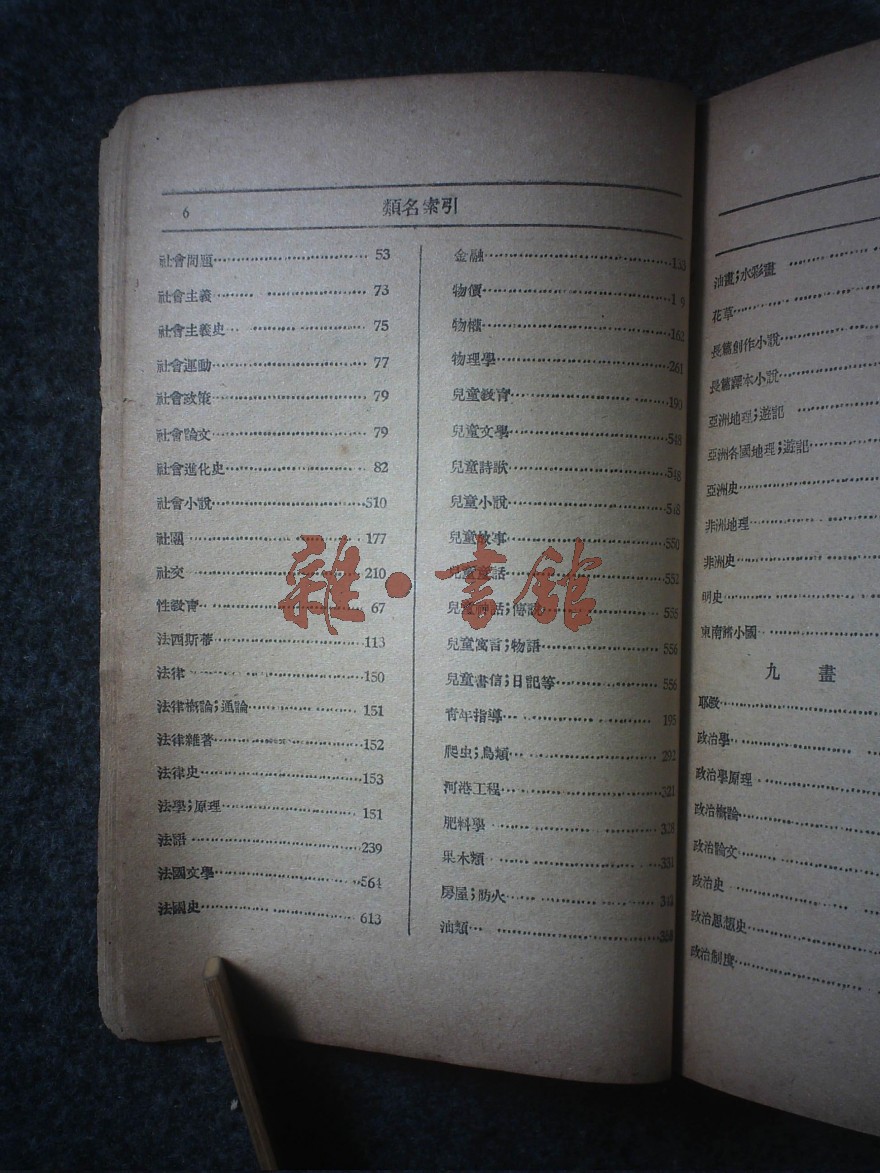 6 類名索引
社會問題 53
社會主義 73
社會主義史 75
社會運動 77
社會政策 79
社會論文 79
社會進化史 82
社會小說 510
社團 177
社交 210
性教育 67
法西斯蒂 113
法律 150
法律概論；通論 151
法律雜著 152
法律史 153
法學；原理 151
法語 239
法國文學 564
法國史 613
金融
物價
物權 162
物理學 261
兒童教育 190
兒童文學 548
兒童詩歌 548
兒童小說 548
兒童故事 550
兒童童話 552
兒童神話；傳說
兒童寓言；物語 556
兒童書信；日記等 556
青年指導 195
爬虫；鳥類 292
河港工程 321
肥料學
果木類 331
房屋；防火
油類
油畫；水彩畫
花草
長篇創作小說
長篇譯本小說
亞洲地理；遊記
亞洲各國地理；遊記
亞洲史
非洲地理
非洲史
明史
東南諸小國
九畫
耶教
政治學
政治學原理
政治概論
政治論文
政治史
政治思想史
政治制度
雜·書館